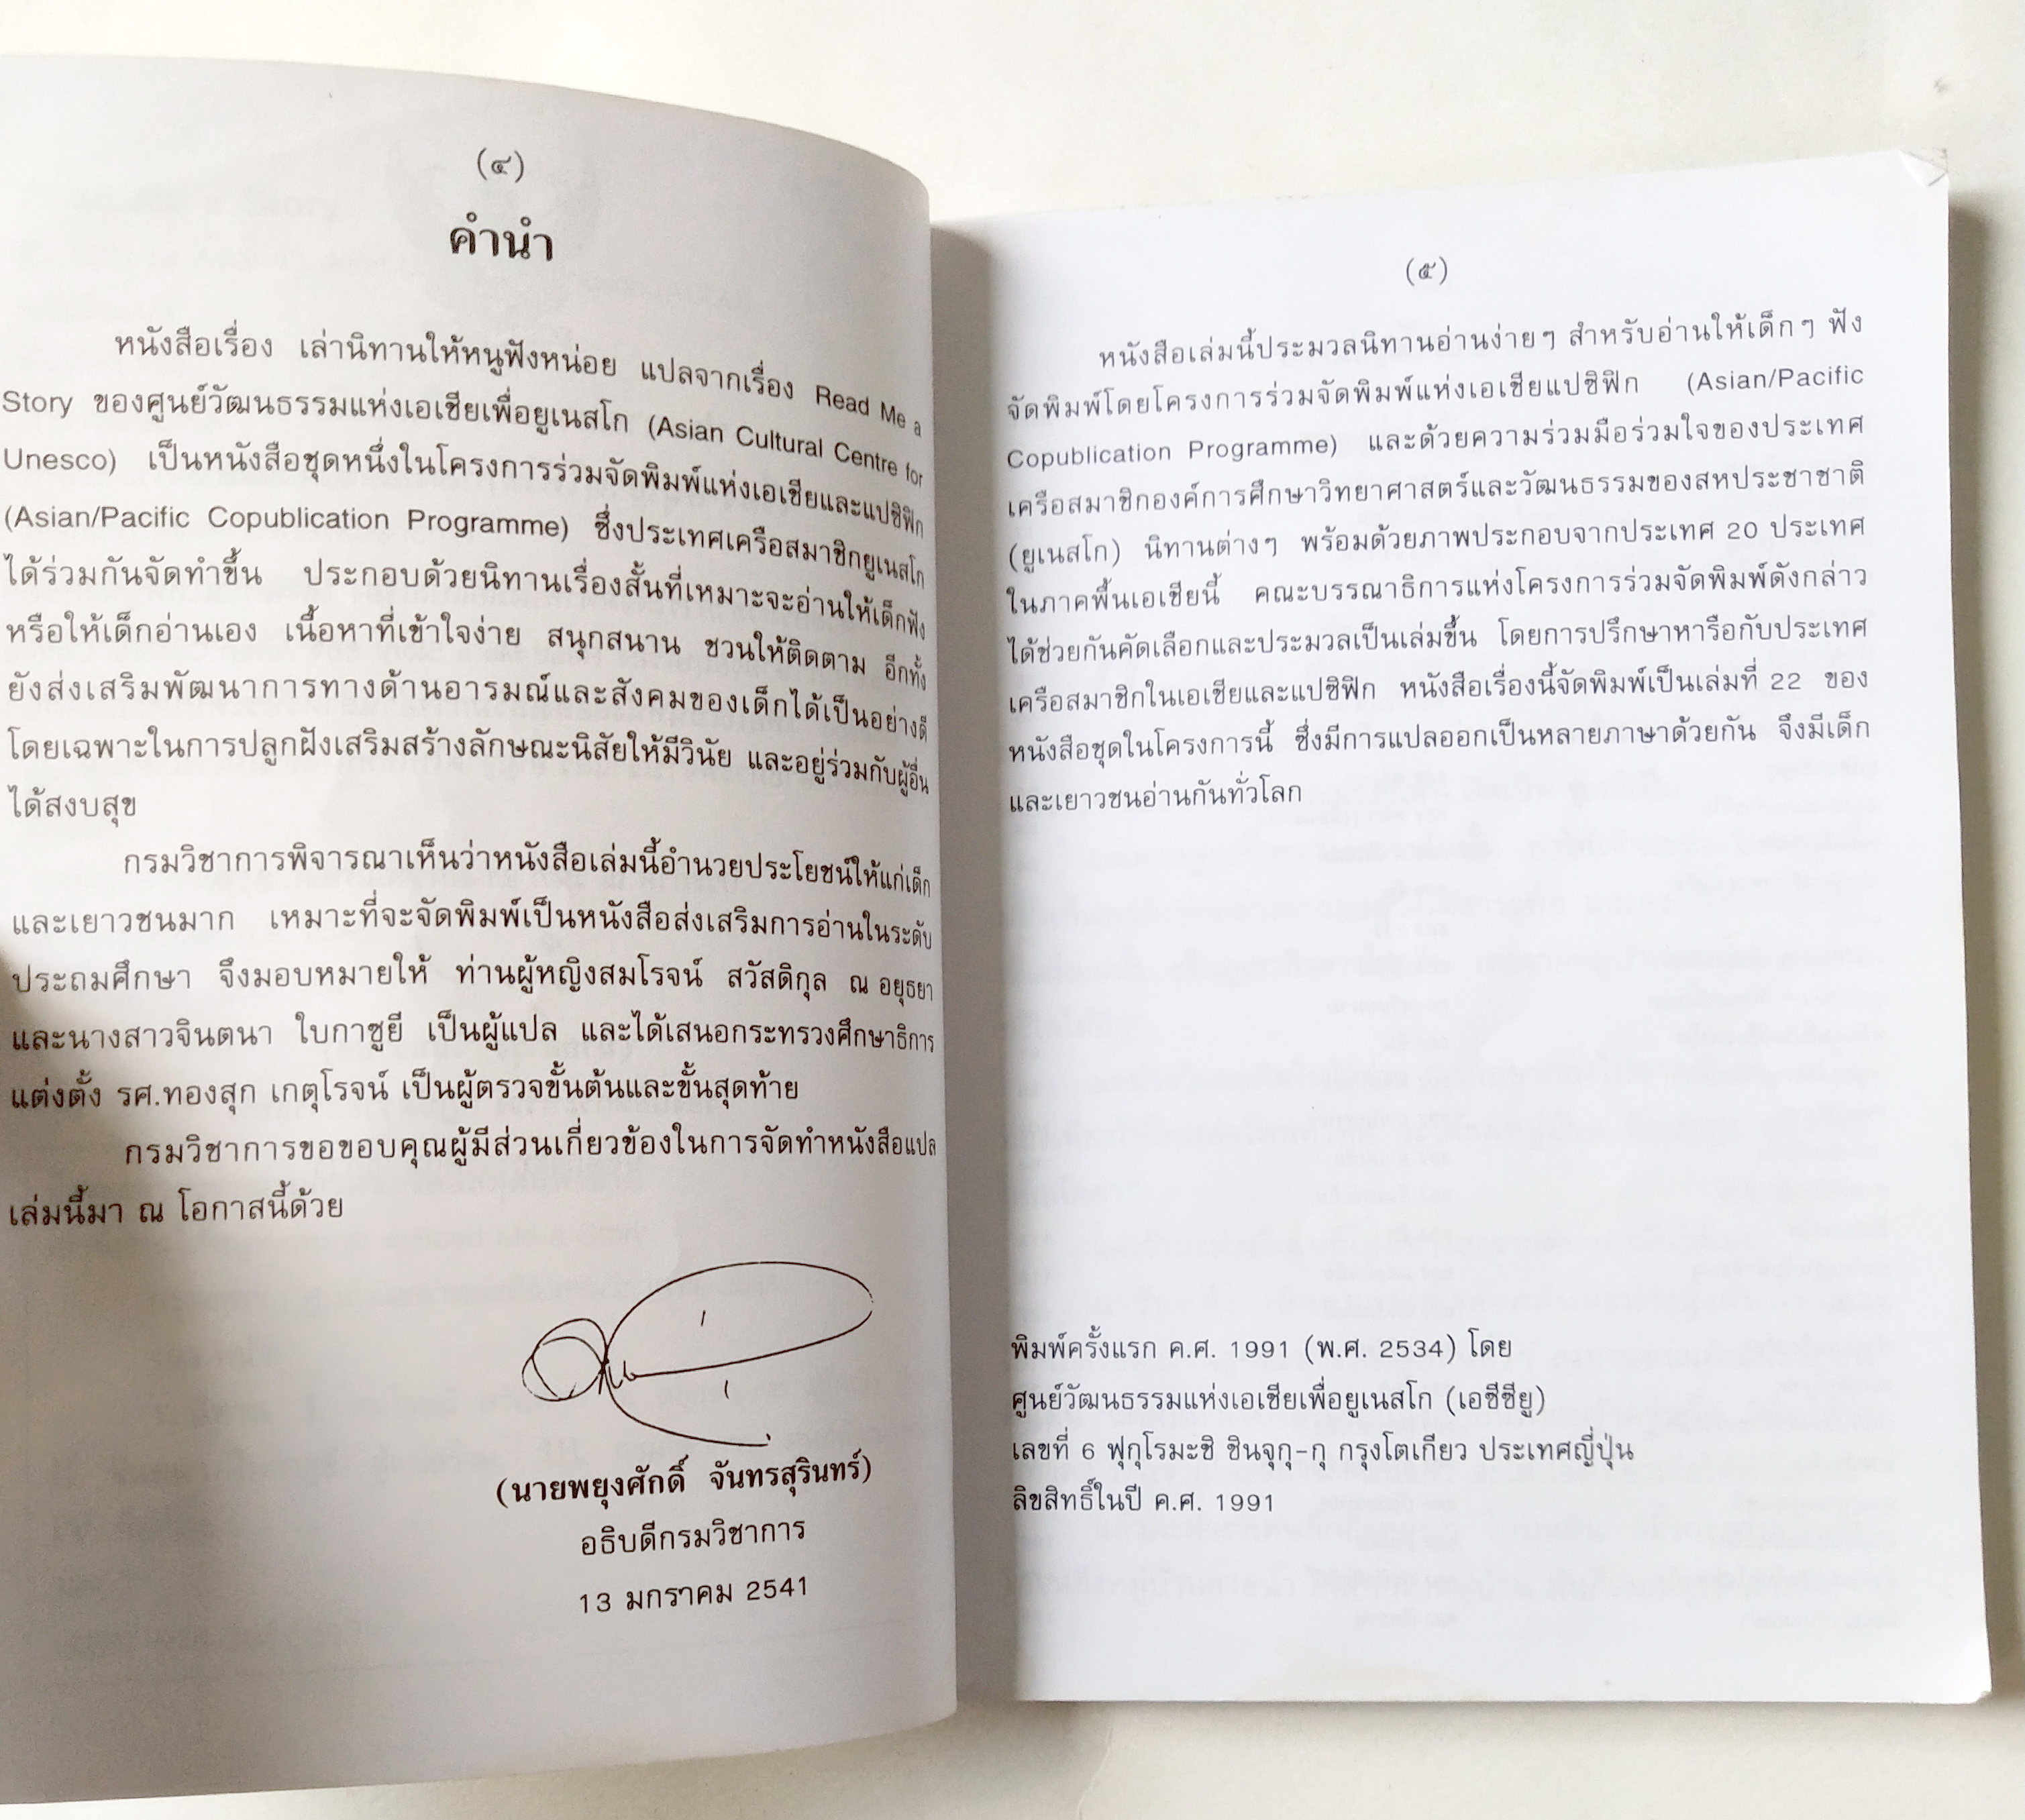 (๔)
คำนำ
หนังสือเรื่อง เล่านิทานให้หนูฟังหน่อย แปลจากเรื่อง Read Me a
Story ของศูนย์วัฒนธรรมแห่งเอเชียเพื่อยูเนสโก (Asian Cultural Centre for
Unesco) เป็นหนังสือชุดหนึ่งในโครงการร่วมจัดพิมพ์แห่งเอเชียและแปซิฟิก
(Asian/Pacific Copublication Programme) ซึ่งประเทศเครือสมาชิกยูเนสโก
ได้ร่วมกันจัดทำขึ้น ประกอบด้วยนิทานเรื่องสั้นที่เหมาะจะอ่านให้เด็กฟัง
หรือให้เด็กอ่านเอง เนื้อหาที่เข้าใจง่าย สนุกสนาน ชวนให้ติดตาม อีกทั้ง
ยังส่งเสริมพัฒนาการทางด้านอารมณ์และสังคมของเด็กได้เป็นอย่างดี
โดยเฉพาะในการปลูกฝังเสริมสร้างลักษณะนิสัยให้มีวินัย และอยู่ร่วมกับผู้อื่น
ได้สงบสุข
กรมวิชาการพิจารณาเห็นว่าหนังสือเล่มนี้อำนวยประโยชน์ให้แก่เด็ก
และเยาวชนมาก เหมาะที่จะจัดพิมพ์เป็นหนังสือส่งเสริมการอ่านในระดับ
ประถมศึกษา จึงมอบหมายให้ ท่านผู้หญิงสมโรจน์ สวัสดิกุล ณ อยุธยา
และนางสาวจินตนา ใบกาซูยี เป็นผู้แปล และได้เสนอกระทรวงศึกษาธิการ
แต่งตั้ง รศ.ทองสุก เกตุโรจน์ เป็นผู้ตรวจขั้นต้นและขั้นสุดท้าย
กรมวิชาการขอขอบคุณผู้มีส่วนเกี่ยวข้องในการจัดทำหนังสือแปล
เล่มนี้มา ณ โอกาสนี้ด้วย
(นายพยุงศักดิ์ จันทรสุรินทร์)
อธิบดีกรมวิชาการ
13 มกราคม 2541
(๕)
หนังสือเล่มนี้ประมวลนิทานอ่านง่ายๆ สำหรับอ่านให้เด็กๆ ฟัง
จัดพิมพ์โดยโครงการร่วมจัดพิมพ์แห่งเอเชียแปซิฟิก (Asian/Pacific
Copublication Programme) และด้วยความร่วมมือร่วมใจของประเทศ
เครือสมาชิกองค์การศึกษาวิทยาศาสตร์และวัฒนธรรมของสหประชาชาติ
(ยูเนสโก) นิทานต่างๆ พร้อมด้วยภาพประกอบจากประเทศ 20 ประเทศ
ในภาคพื้นเอเชียนี้ คณะบรรณาธิการแห่งโครงการร่วมจัดพิมพ์ดังกล่าว
ได้ช่วยกันคัดเลือกและประมวลเป็นเล่มขึ้น โดยการปรึกษาหารือกับประเทศ
เครือสมาชิกในเอเชียและแปซิฟิก หนังสือเรื่องนี้จัดพิมพ์เป็นเล่มที่ 22 ของ
หนังสือชุดในโครงการนี้ ซึ่งมีการแปลออกเป็นหลายภาษาด้วยกัน จึงมีเด็ก
และเยาวชนอ่านกันทั่วโลก
พิมพ์ครั้งแรก ค.ศ. 1991 (พ.ศ. 2534) โดย
ศูนย์วัฒนธรรมแห่งเอเชียเพื่อยูเนสโก (เอซีซียู)
เลขที่ 6 ฟุกุโรมะชิ ชินจุกุ-กุ กรุงโตเกียว ประเทศญี่ปุ่น
ลิขสิทธิ์ในปี ค.ศ. 1991